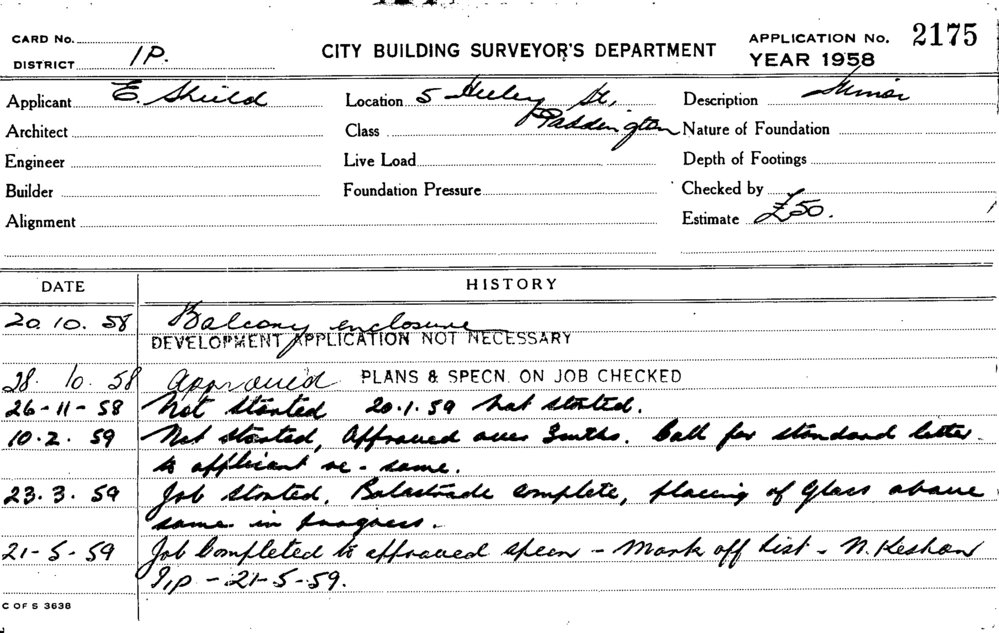 CARD No.
DISTRICT 1P.
CITY BUILDING SURVEYOR'S DEPARTMENT
APPLICATION No. 2175
YEAR 1958
Applicant E. Shield
Location 5 Heeley St, Paddington
Description Minor
Architect
Class
Nature of Foundation
Engineer
Live Load
Depth of Footings
Builder
Foundation Pressure
Checked by
Alignment
Estimate £50.
DATE HISTORY
20.10.58 Balcony enclosure
DEVELOPMENT APPLICATION NOT NECESSARY
28.10.58 Approved PLANS & SPECN. ON JOB CHECKED
26-11-58 Not started 20.1.59 Not started.
10.2.59 Not started, Approved over 3mths. Call for standard letter
to applicant re-same.
23.3.59 Job started, Balastrade complete, placing of glass above
same in progress.
21-5-59 Job Completed to approved specn - Mark off List - N. Keshan
1P - 21-5-59.
C OF S 3638